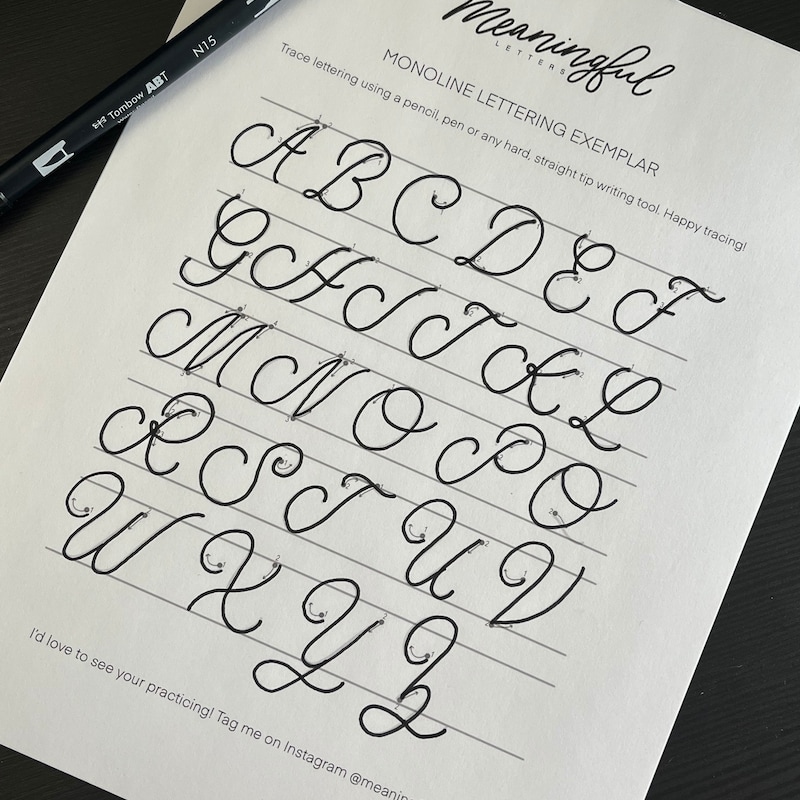 Tombow ABT N15
Meaningful
LETTERS
MONOLINE LETTERING EXEMPLAR
Trace lettering using a pencil, pen or any hard, straight tip writing tool. Happy tracing!
A B C D E F
G H I J K L
M N O P Q
R S T U V
W X Y Z
I'd love to see your practicing! Tag me on Instagram @meanin